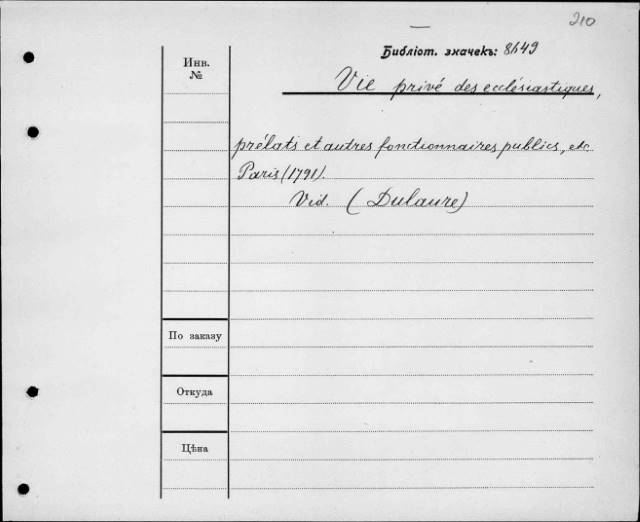 210
Библіот. значекъ: 8649
Инв.
№
Vie privé des ecclésiastiques,
prélats et autres fonctionnaires publics, etc
Paris (1791).
Vid. (Dulaure)
По заказу
Откуда
Цѣна